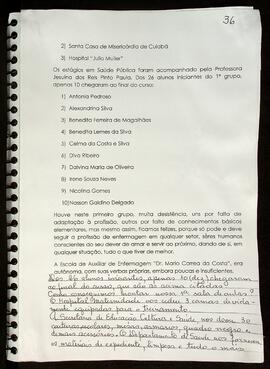 36
2) Santa Casa de Misericórdia de Cuiabá
3) Hospital "Julio Muller"
Os estágios em Saúde Pública foram acompanhado pela Professora
Jesuína dos Reis Pinto Paula. Dos 26 alunos iniciantes do 1º grupo,
apenas 10 chegaram ao final do curso:
1) Antonia Pedroso
2) Alexandrina Silva
3) Benedita Ferreira de Magalhães
4) Benedita Lemes da Silva
5) Celma da Costa e Silva
6) Diva Ribeiro
7) Dalvina Maria de Oliveira
8) Irene Souza Neves
9) Nicolina Gomes
10) Nasson Galdino Delgado
Houve neste primeiro grupo, muita desistência, uns por falta de
adaptação à profissão, outros por falta de conhecimentos básicos
elementares, mas mesmo assim, ficamos felizes, porque só pode e deve
seguir a profissão de enfermagem em qualquer setor, sêres humanos
conscientes do seu dever de amar e servir ao próximo, dando de si, em
qualquer situação, tudo o que tiver de melhor.
A Escola de Auxiliar de Enfermagem "Dr. Mario Correa da Costa", era
autônoma, com suas verbas próprias, embora poucas e insuficientes.
Dos 26 alunos iniciantes, apenas 10 (dez) chegaram
ao final do curso, que são os acima citados.
Como conseguimos montar nossa 1ª sala de aulas?
O Hospital Maternidade nos cedeu 3 camas devida-
mente equipadas para o treinamento.
A Secretaria de Educação Cultura e Saúde, nos doou 30
carteiras escolares, mesa, armários, quadro negro e
demais acessórios. O Departamento de Saúde nos fornecia
os materiais de expediente, limpeza e tudo o mais